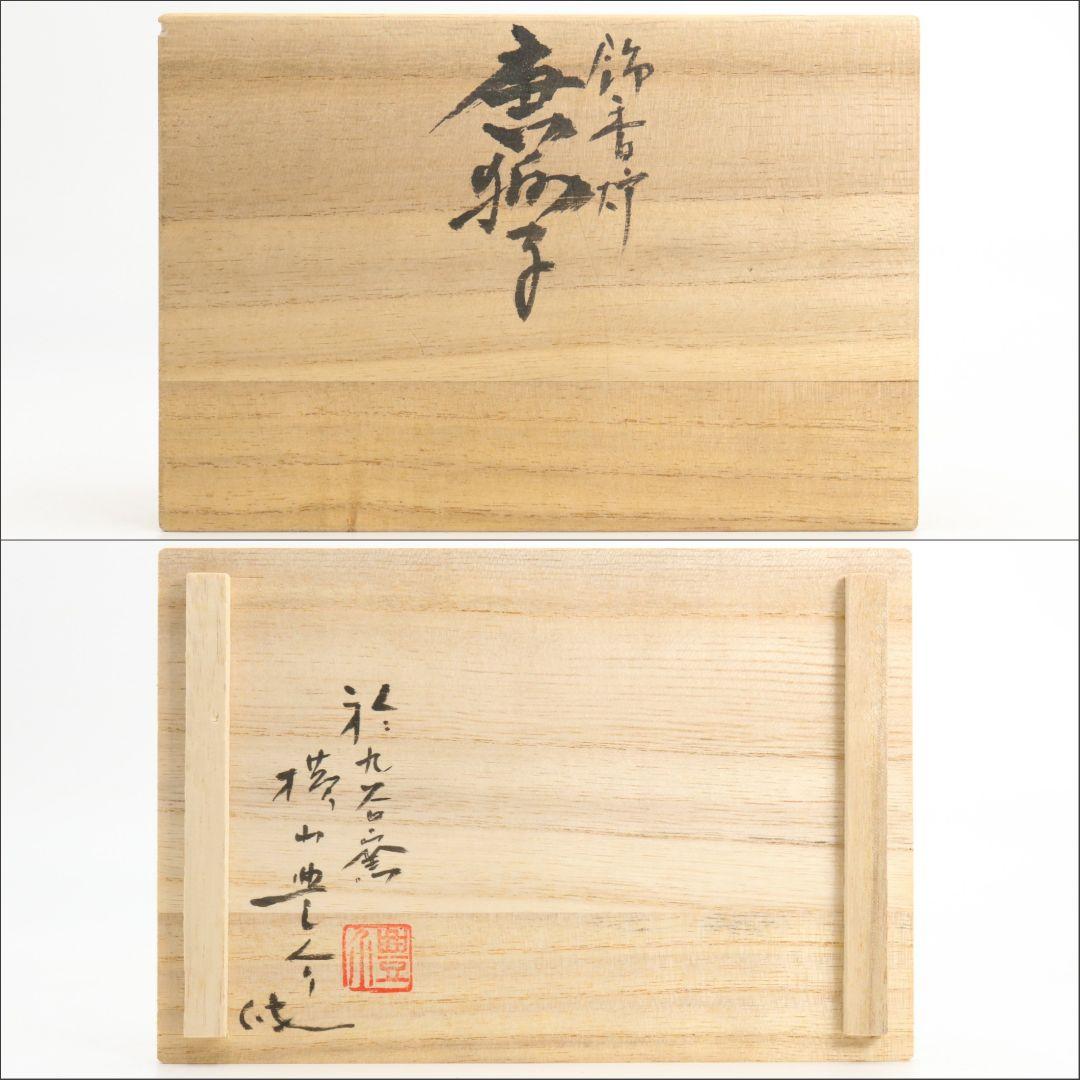 飾香炉
唐獅子
於九谷窯
横山豊介
豊介